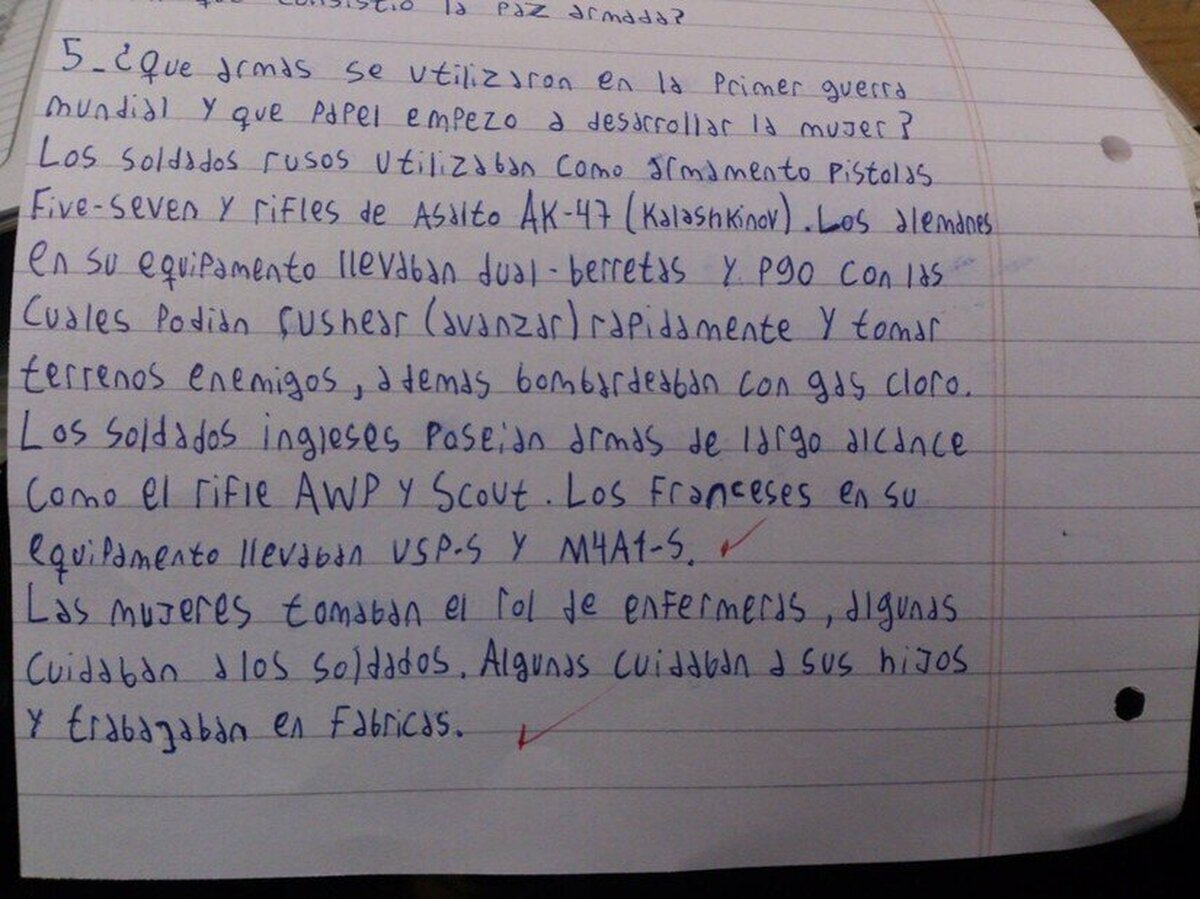 consistio la paz armada?
5_¿Que armas se utilizaron en la Primer guerra
mundial y que papel empezo a desarrollar la mujer?
Los soldados rusos utilizaban como armamento pistolas
Five-seven y rifles de Asalto AK-47 (Kalashkinov). Los alemanes
en su equipamento llevaban dual-berretas y P90 con las
cuales podian rushear (avanzar) rapidamente y tomar
terrenos enemigos, ademas bombardeaban con gas cloro.
Los soldados ingleses poseian armas de largo alcance
como el rifle AWP y Scout. Los Franceses en su
equipamento llevaban USP-S y M4A1-S.
Las mujeres tomaban el rol de enfermeras, algunas
cuidaban a los soldados. Algunas cuidaban a sus hijos
y trabagaban en Fabricas.